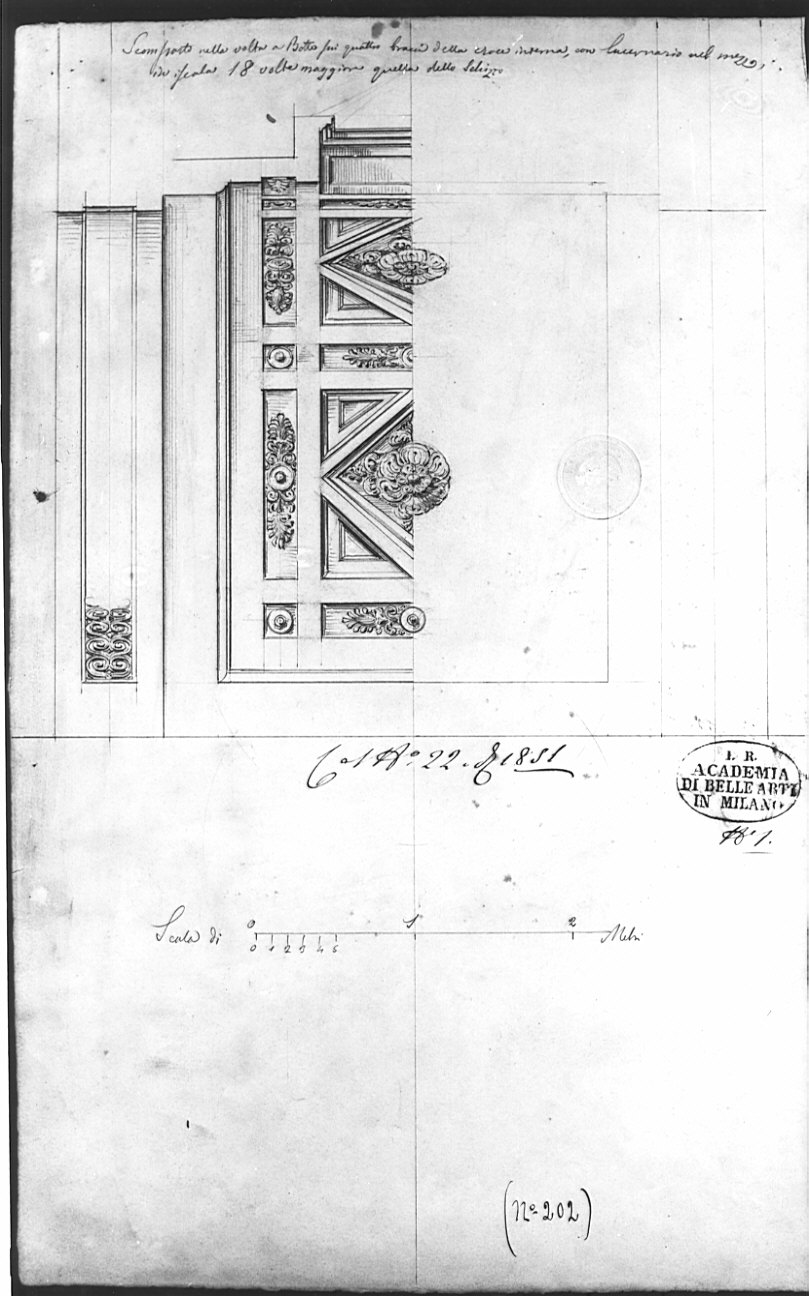 Scomparto nella volta a Botte sui quattro bracci della croce interna, con lucernario nel mezzo,
in iscala 18 volte maggiore quella dello Schizzo
Col N.º 22. 1851
I. R.
ACADEMIA
DI BELLE ARTI
IN MILANO
Nº 1.
Scala di 0 1 2 Metri
0 1 2 3 4 5
(Nº 202)